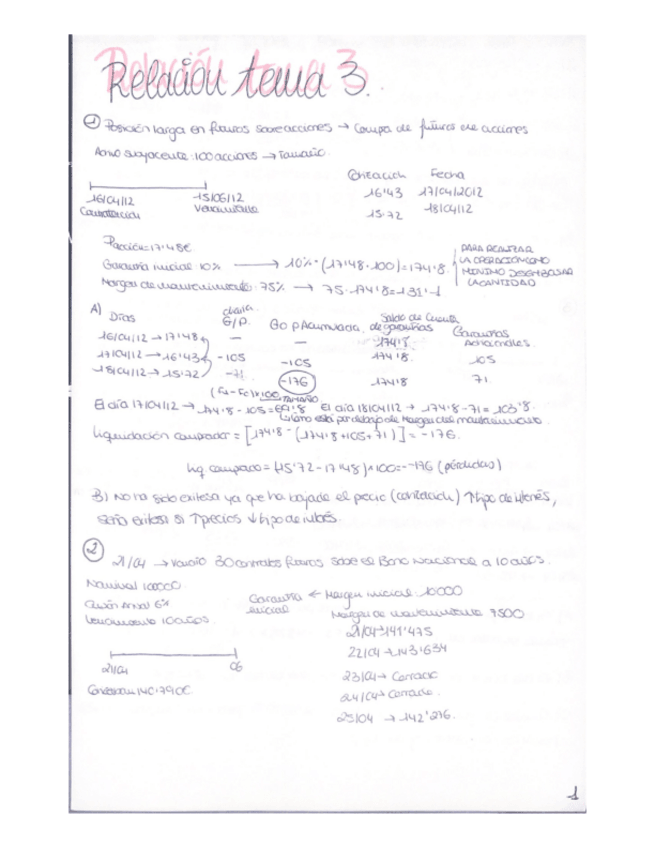 Relación tema 3.
① Posición larga en futuros sobre acciones → Compra de futuros de acciones
Activo subyacente: 100 acciones → Tamaño.
Cotización Fecha
16/04/12 15/06/12 16'43 17/04/2012
Contratación Vencimiento 15'72 18/04/12
Precio = 17'48€
Garantía inicial 10% → 10% · (17'48 · 100) = 174'8
Margen de mantenimiento: 75% → 75 · 174'8 = 131'1
PARA REALIZAR
LA OPERACIÓN COMO
MÍNIMO DESEMBOLSAR
LA CANTIDAD
A) Días diaria G/P. G o P Acumulada Saldo de Cuenta de garantías Garantías Adicionales
16/04/12 → 17'48 — — 174'8
17/04/12 → 16'43 -105 -105 174'8 105
18/04/12 → 15'72 -71 -176 174'8 71
(F1-F0)×100 TAMAÑO
El día 17/04/12 → 174'8 - 105 = 69'8 El día 18/04/12 → 174'8 - 71 = 103'8
está por debajo de Margen del mantenimiento
Liquidación comprador = [174'8 - (174'8+105+71)] = -176.
Liq. comprador = (15'72 - 17'48)×100 = -176 (pérdidas)
B) No ha sido exitosa ya que ha bajado el precio (cotización) ↑ tipo de interés,
sería exitosa si ↑ precios ↓ tipo de interés.
② 21/04 → 30 contratos futuros sobre el Bono Nacional a 10 años.
Nominal 100000
Cupón Anual 6% Garantía inicial ← Margen inicial: 10000
Vencimiento 10 años. Margen de mantenimiento 7500
21/04 → 141'475
22/04 → 143'634
21/04 06 23/04 → Cerrado
Cotización 140'790€. 24/04 → Cerrado.
25/04 → 142'276.
1